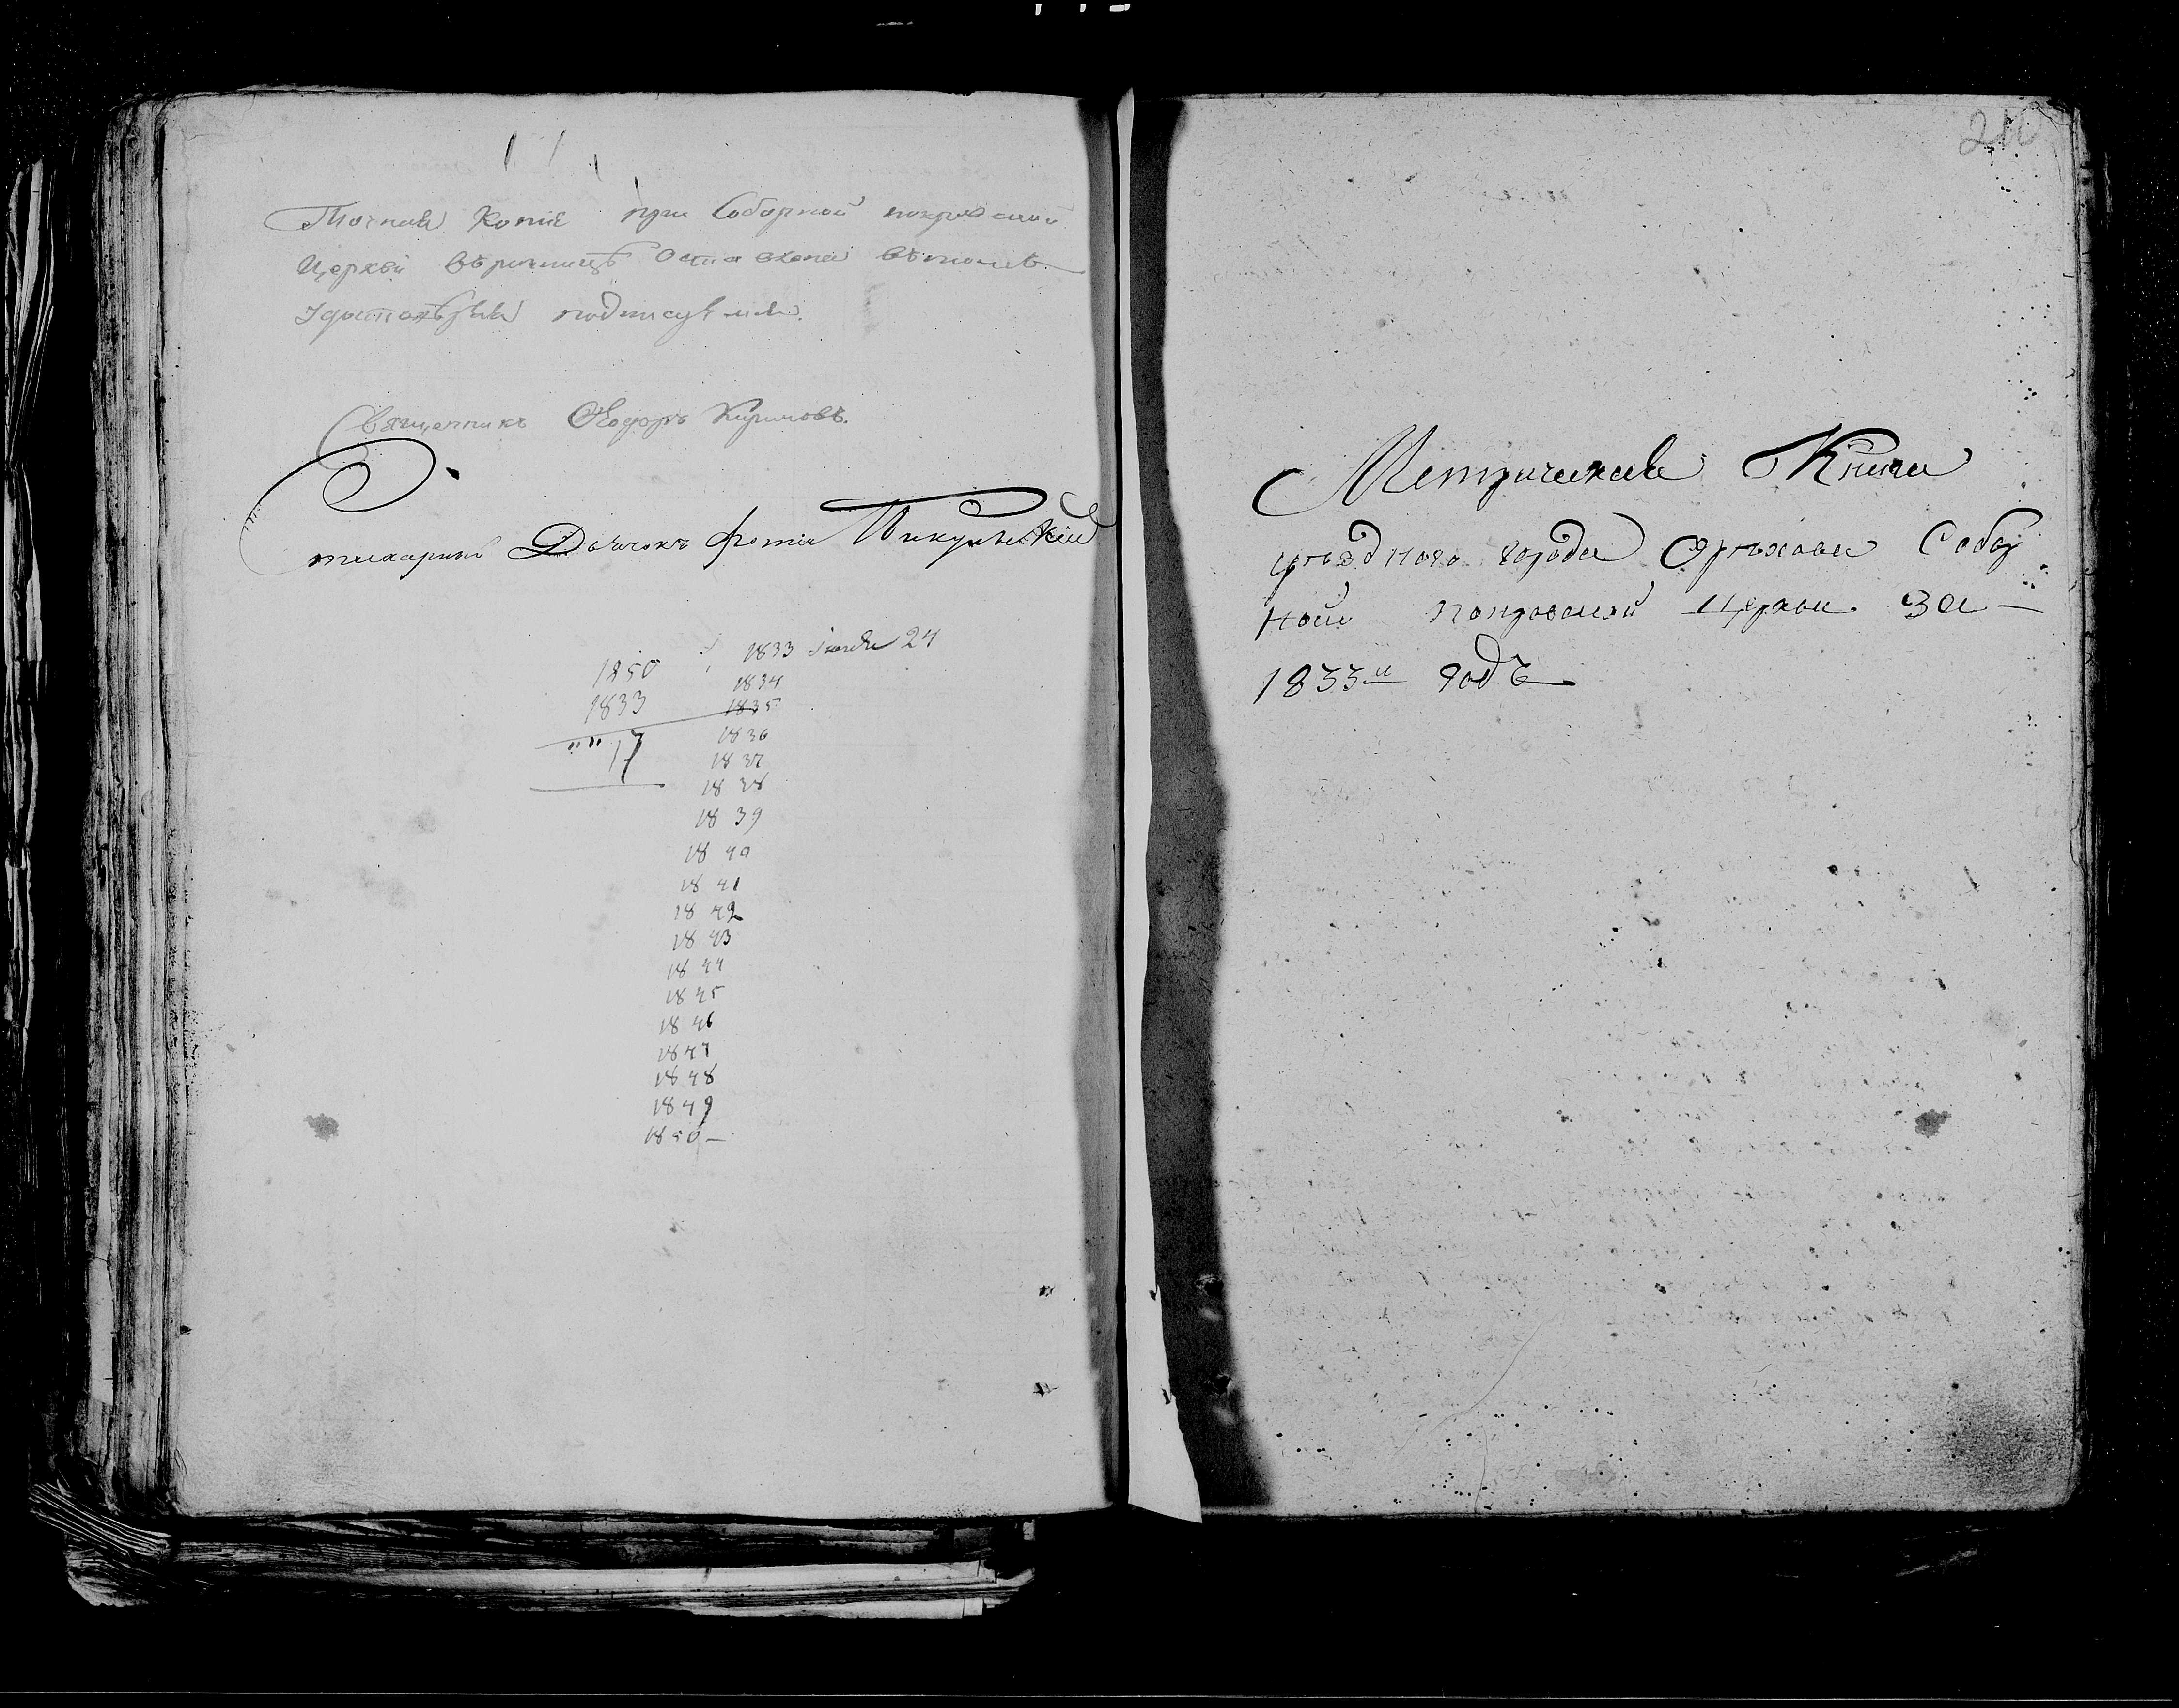 Точная Копія при Соборной покровской
Церквы въ ризницѣ оставлена въ томъ
удостовѣряя подписуемся.
Священникъ Ѳеодоръ Кириловъ.
Стихарный Дьячокъ Фотій
1833 Іюня 24
1850
1834
1833
1835
1836
17
1837
1838
1839
1840
1841
1842
1843
1844
1845
1846
1847
1848
1849
1850
210
Метрическая Книга
уѣзднаго города Орѣхова Собор
ной покровской Церкви за
1833й годъ